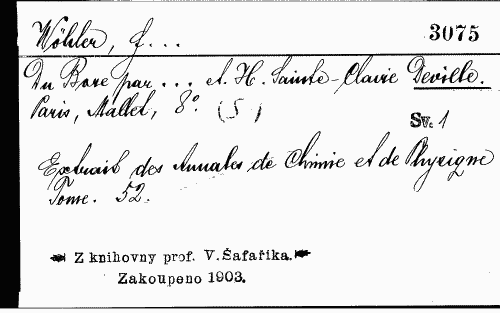 Wöhler, F... 3075
Du Bore par... et H. Sainte-Claire Deville.
Paris, Mallet, 8°. (S)
Sv. 1
Extrait des Annales de Chimie et de Physique
Tome. 52.
Z knihovny prof. V. Šafaříka.
Zakoupeno 1903.